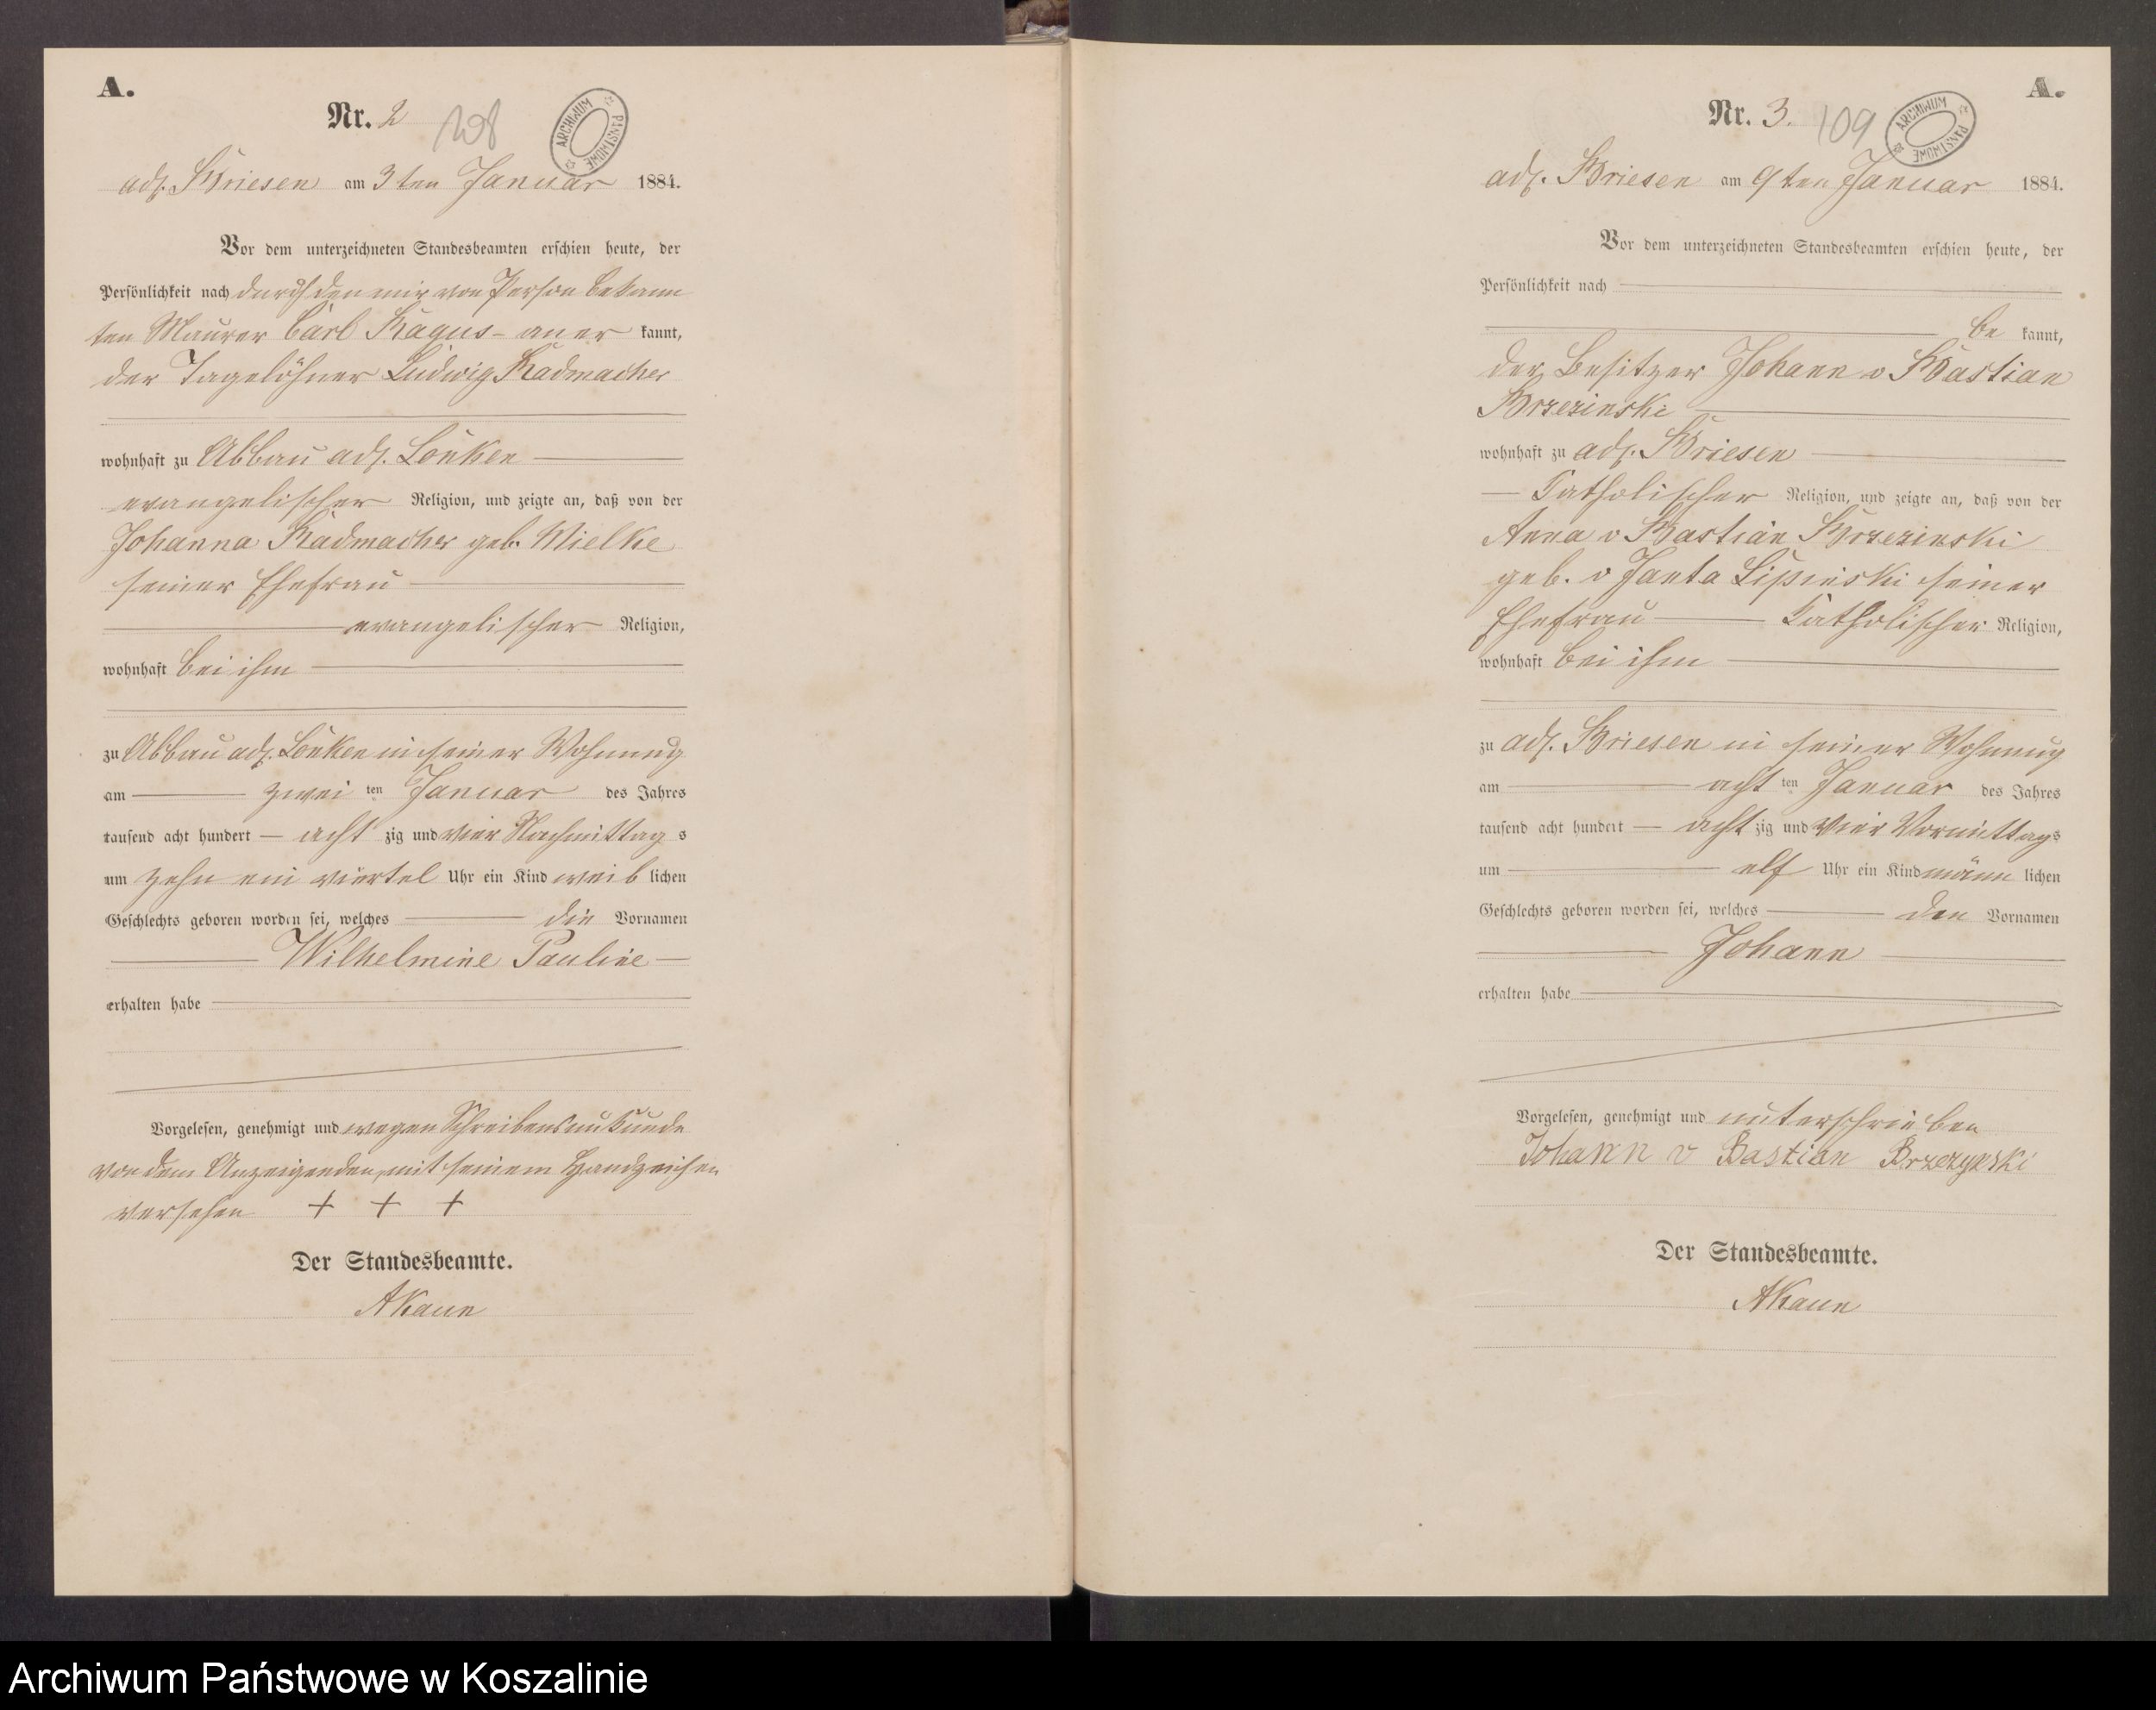 A.
Nr. 2
108
ARCHIWUM PAŃSTWOWE
adl. Briesen am 3ten Januar 1884.
Vor dem unterzeichneten Standesbeamten erschien heute, der
Persönlichkeit nach durch den mir von Person bekann
ten Maurer Carl Ragus - aner kannt,
der Tagelöhner Ludwig Radmacher
wohnhaft zu Abbau adl. Lonken
evangelischer Religion, und zeigte an, daß von der
Johanna Radmacher geb. Mielke
seiner Ehefrau
evangelischer Religion,
wohnhaft bei ihm
zu Abbau adl. Lonken in seiner Wohnung
am zwei ten Januar des Jahres
tausend acht hundert acht zig und vier Nachmittag s
um zehn ein viertel Uhr ein Kind weib lichen
Geschlechts geboren worden sei, welches die Vornamen
Wilhelmine Pauline
erhalten habe
Vorgelesen, genehmigt und wegen Schreibensunkunde
von dem Anzeigenden mit seinem Handzeichen
versehen + + +
Der Standesbeamte.
A.
Nr. 3.
109
ARCHIWUM PAŃSTWOWE
adl. Briesen am 9ten Januar 1884.
Vor dem unterzeichneten Standesbeamten erschien heute, der
Persönlichkeit nach
be kannt,
der Besitzer Johann v Bastian
Brzezinski
wohnhaft zu adl. Briesen
Catholischer Religion, und zeigte an, daß von der
Anna v Bastian Brzezinski
geb. v Janta Lipinski seiner
Ehefrau Catholischer Religion,
wohnhaft bei ihm
zu adl. Briesen in seiner Wohnung
am acht ten Januar des Jahres
tausend acht hundert acht zig und vier Vormittags
um elf Uhr ein Kind männ lichen
Geschlechts geboren worden sei, welches den Vornamen
Johann
erhalten habe
Vorgelesen, genehmigt und unterschrieben
Johann v Bastian Brzezynski
Der Standesbeamte.
Archiwum Państwowe w Koszalinie